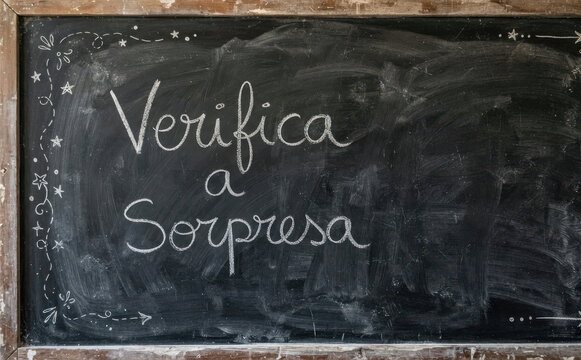 Verifica
a
Sorpresa